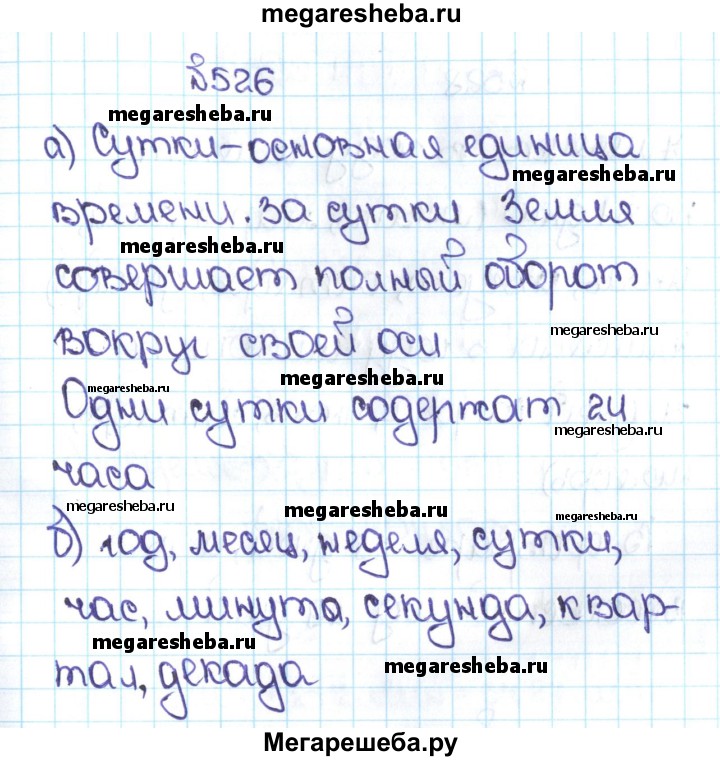 megaresheba.ru
№526
megaresheba.ru
а) Сутки-основная единица
megaresheba.ru
времени. за сутки Земля
megaresheba.ru
совершает полный оборот
вокруг своей оси
megaresheba.ru
megaresheba.ru
megaresheba.ru
Одни сутки содержат 24
megaresheba.ru
часа
megaresheba.ru
megaresheba.ru
megaresheba.ru
б) год, месяц, неделя, сутки,
час, минута, секунда, квар-
megaresheba.ru
megaresheba.ru
тал, декада
Мегарешеба.ру